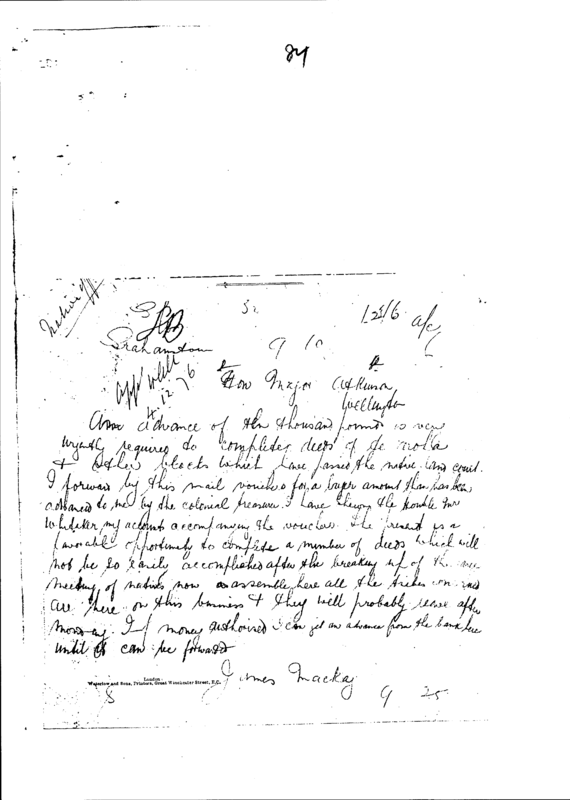 84
Grahamton
9 10
4.12.76
Hon Major Atkinson
Wellington
advance of ten thousand pounds is very
urgently required to complete deeds of
& other blocks which have passed the native land court.
I forward by this mail vouchers for a larger amount than has been
advanced to me by the colonial treasurer. I have shewn the Honble Mr
Whitaker my account accompanying the vouchers. The present is a
favorable opportunity to complete a number of deeds which will
not be so easily accomplished after the breaking up of the
meeting of natives now assembled here all the tribes
are here on this business & they will probably leave after
Monday. If money authorised I can get an advance from the bank here
until it can be forwarded
James Mackay
9 25
London
Waterlow and Sons, Printers, Great Winchester Street, E.C.
8